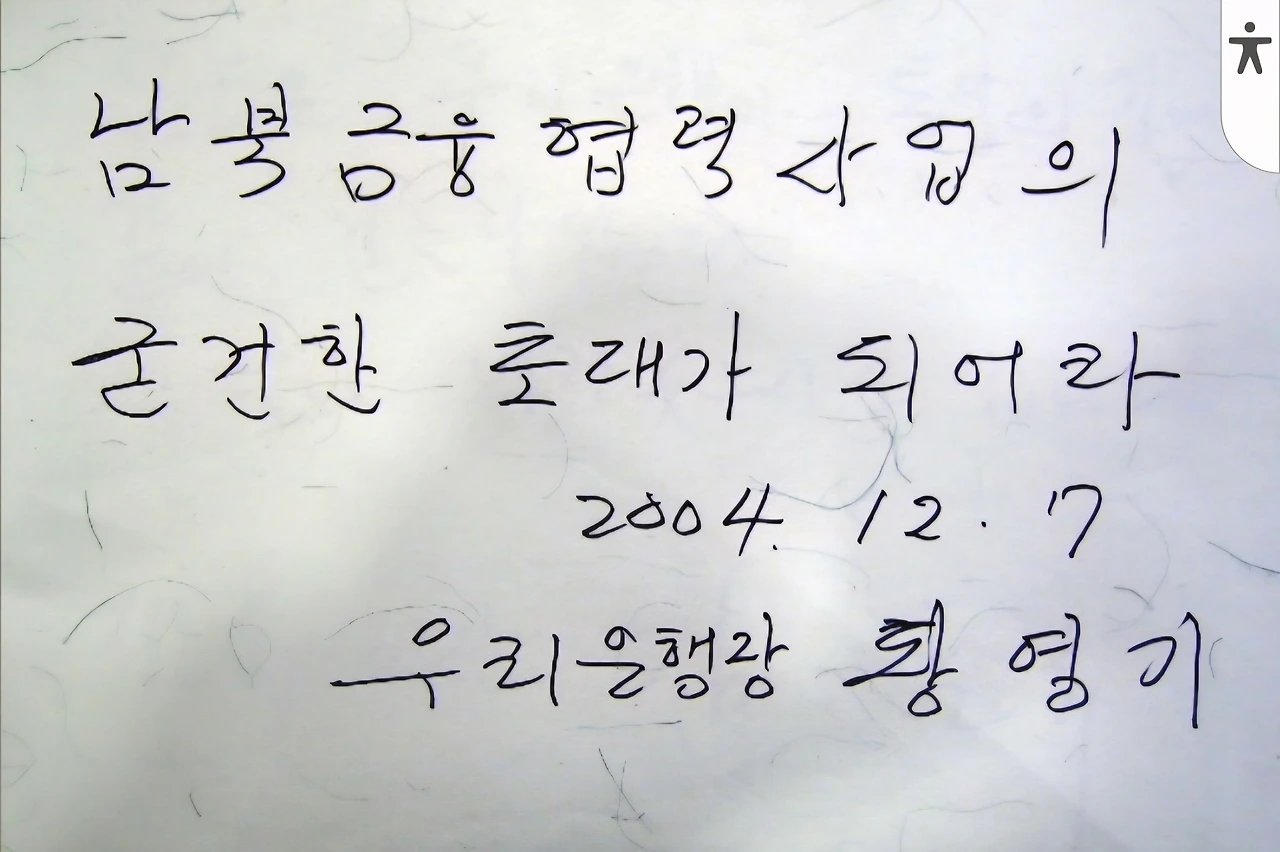 남북금융협력사업의
굳건한 토대가 되어라
2004. 12. 7
우리은행장 황영기